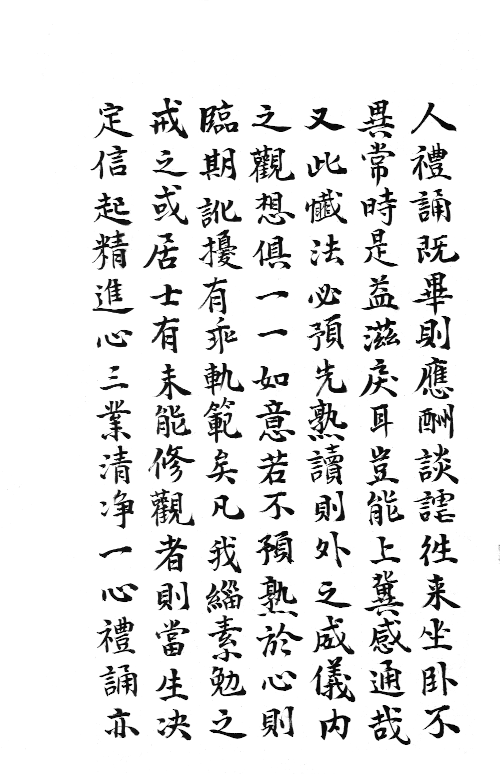 人禮誦既畢則應酬談謔徃来坐卧不
異常時是益滋戾耳豈能上冀感通哉
又此懺法必預先熟讀則外之威儀内
之觀想俱一一如意若不預熟於心則
臨期訛擾有乖軌範矣凡我緇素勉之
戒之或居士有未能修觀者則當生决
定信起精進心三業清净一心禮誦亦